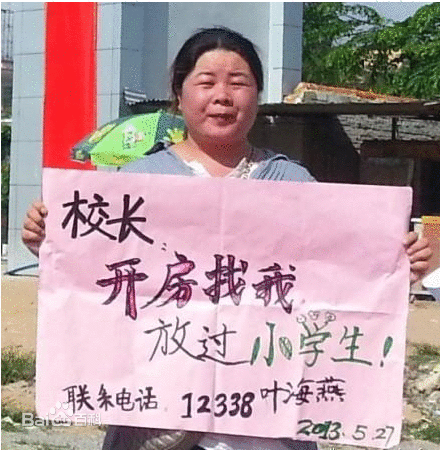 校长
开房找我
放过小学生！
联系电话 12338 叶海燕
2013.5.27
Baidu百科